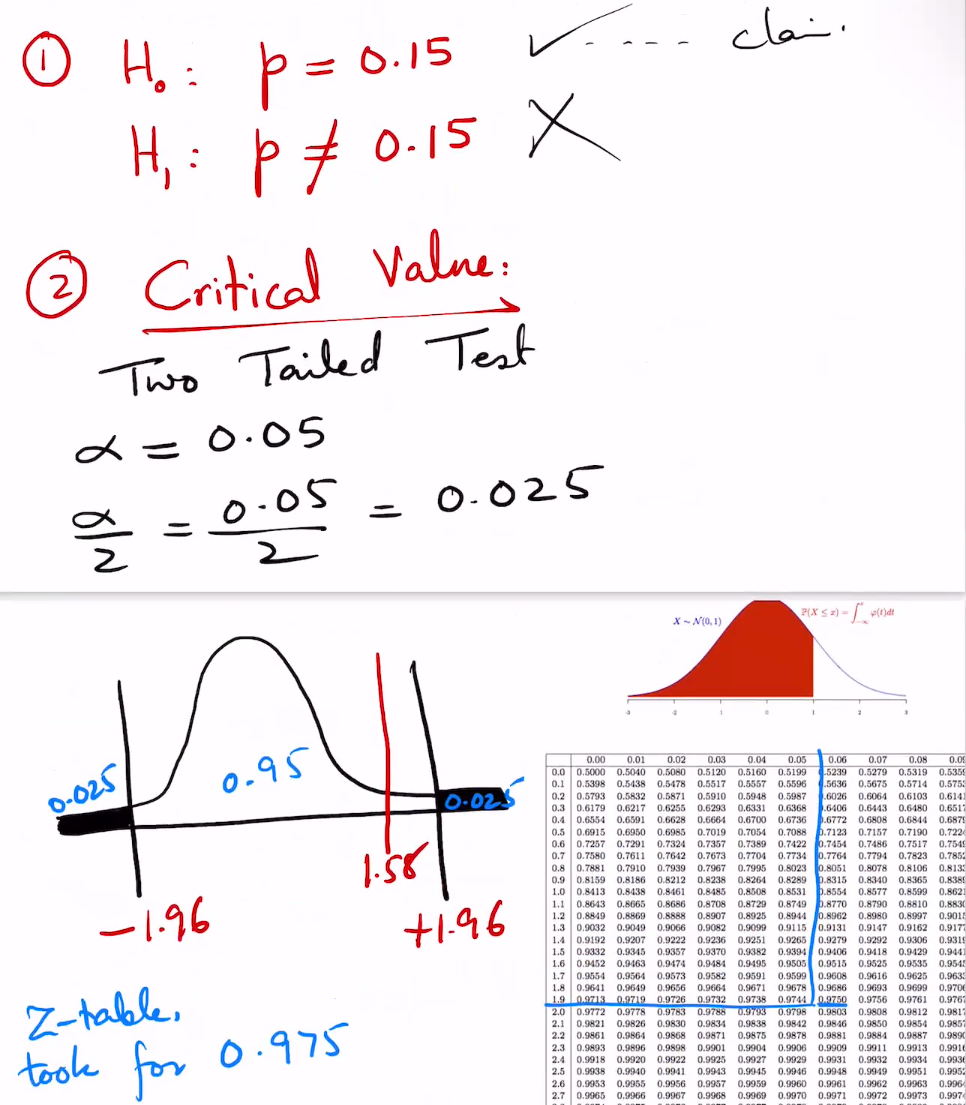 ① H₀: p = 0.15 ✓ - - - - clai.
H₁: p ≠ 0.15 X
② Critical Value:
Two Tailed Test
α = 0.05
α/2 = 0.05/2 = 0.025
X ~ N(0, 1)
P(X ≤ z) = ∫ φ(t)dt
-3 -2 1 0 1 2 3
0.025 0.95 0.025
1.58
-1.96 +1.96
Z-table,
took for 0.975
0.00 0.01 0.02 0.03 0.04 0.05 0.06 0.07 0.08
0.0 0.5000 0.5040 0.5080 0.5120 0.5160 0.5199 0.5239 0.5279 0.5319
0.1 0.5398 0.5438 0.5478 0.5517 0.5557 0.5596 0.5636 0.5675 0.5714
0.2 0.5793 0.5832 0.5871 0.5910 0.5948 0.5987 0.6026 0.6064 0.6103
0.3 0.6179 0.6217 0.6255 0.6293 0.6331 0.6368 0.6406 0.6443 0.6480
0.4 0.6554 0.6591 0.6628 0.6664 0.6700 0.6736 0.6772 0.6808 0.6844
0.5 0.6915 0.6950 0.6985 0.7019 0.7054 0.7088 0.7123 0.7157 0.7190
0.6 0.7257 0.7291 0.7324 0.7357 0.7389 0.7422 0.7454 0.7486 0.7517
0.7 0.7580 0.7611 0.7642 0.7673 0.7704 0.7734 0.7764 0.7794 0.7823
0.8 0.7881 0.7910 0.7939 0.7967 0.7995 0.8023 0.8051 0.8078 0.8106
0.9 0.8159 0.8186 0.8212 0.8238 0.8264 0.8289 0.8315 0.8340 0.8365
1.0 0.8413 0.8438 0.8461 0.8485 0.8508 0.8531 0.8554 0.8577 0.8599
1.1 0.8643 0.8665 0.8686 0.8708 0.8729 0.8749 0.8770 0.8790 0.8810
1.2 0.8849 0.8869 0.8888 0.8907 0.8925 0.8944 0.8962 0.8980 0.8997
1.3 0.9032 0.9049 0.9066 0.9082 0.9099 0.9115 0.9131 0.9147 0.9162
1.4 0.9192 0.9207 0.9222 0.9236 0.9251 0.9265 0.9279 0.9292 0.9306
1.5 0.9332 0.9345 0.9357 0.9370 0.9382 0.9394 0.9406 0.9418 0.9429
1.6 0.9452 0.9463 0.9474 0.9484 0.9495 0.9505 0.9515 0.9525 0.9535
1.7 0.9554 0.9564 0.9573 0.9582 0.9591 0.9599 0.9608 0.9616 0.9625
1.8 0.9641 0.9649 0.9656 0.9664 0.9671 0.9678 0.9686 0.9693 0.9699
1.9 0.9713 0.9719 0.9726 0.9732 0.9738 0.9744 0.9750 0.9756 0.9761
2.0 0.9772 0.9778 0.9783 0.9788 0.9793 0.9798 0.9803 0.9808 0.9812
2.1 0.9821 0.9826 0.9830 0.9834 0.9838 0.9842 0.9846 0.9850 0.9854
2.2 0.9861 0.9864 0.9868 0.9871 0.9875 0.9878 0.9881 0.9884 0.9887
2.3 0.9893 0.9896 0.9898 0.9901 0.9904 0.9906 0.9909 0.9911 0.9913
2.4 0.9918 0.9920 0.9922 0.9925 0.9927 0.9929 0.9931 0.9932 0.9934
2.5 0.9938 0.9940 0.9941 0.9943 0.9945 0.9946 0.9948 0.9949 0.9951
2.6 0.9953 0.9955 0.9956 0.9957 0.9959 0.9960 0.9961 0.9962 0.9963
2.7 0.9965 0.9966 0.9967 0.9968 0.9969 0.9970 0.9971 0.9972 0.9973